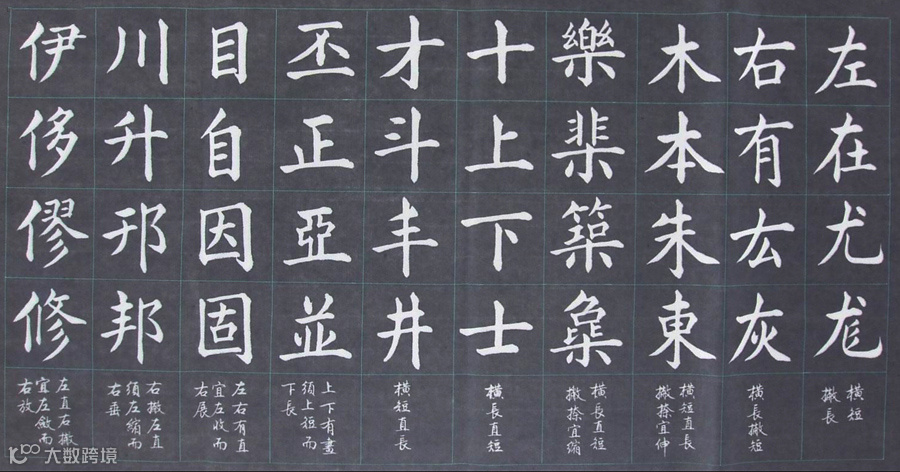 左在尤尨
橫短
撇長
右有厷灰
橫長撇短
木本朱東
橫短直長
撇捺宜伸
樂棐築
橫長直短
撇捺宜縮
十上下士
橫長直短
才斗丰井
橫短直長
丕正亞並
上下有畫
須上短而
下長
目自因固
左右有直
宜左收而
右展
川升邗邦
右撇左直
須左縮而
右垂
伊侈僇修
左直右撇
宜左斂而
右放
大数跨境